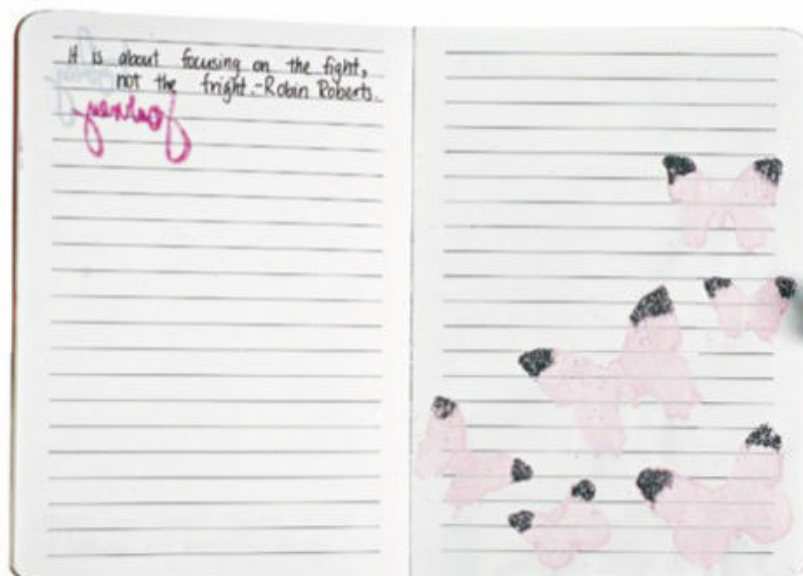 It is about focusing on the fight,
not the fright.-Robin Roberts.